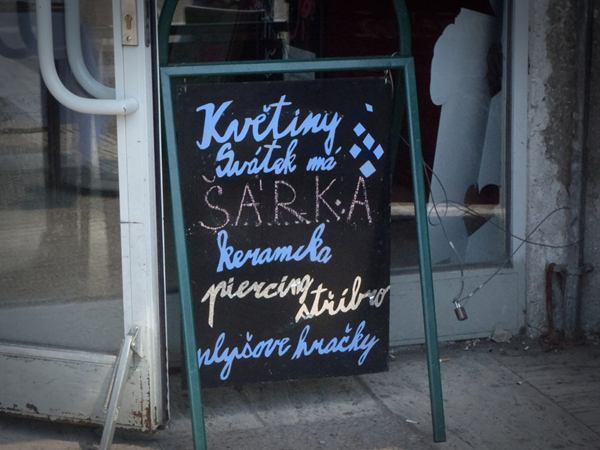 Květiny
Svátek má
ŠÁRKA
keramika
piercing
stříbro
plyšové hračky